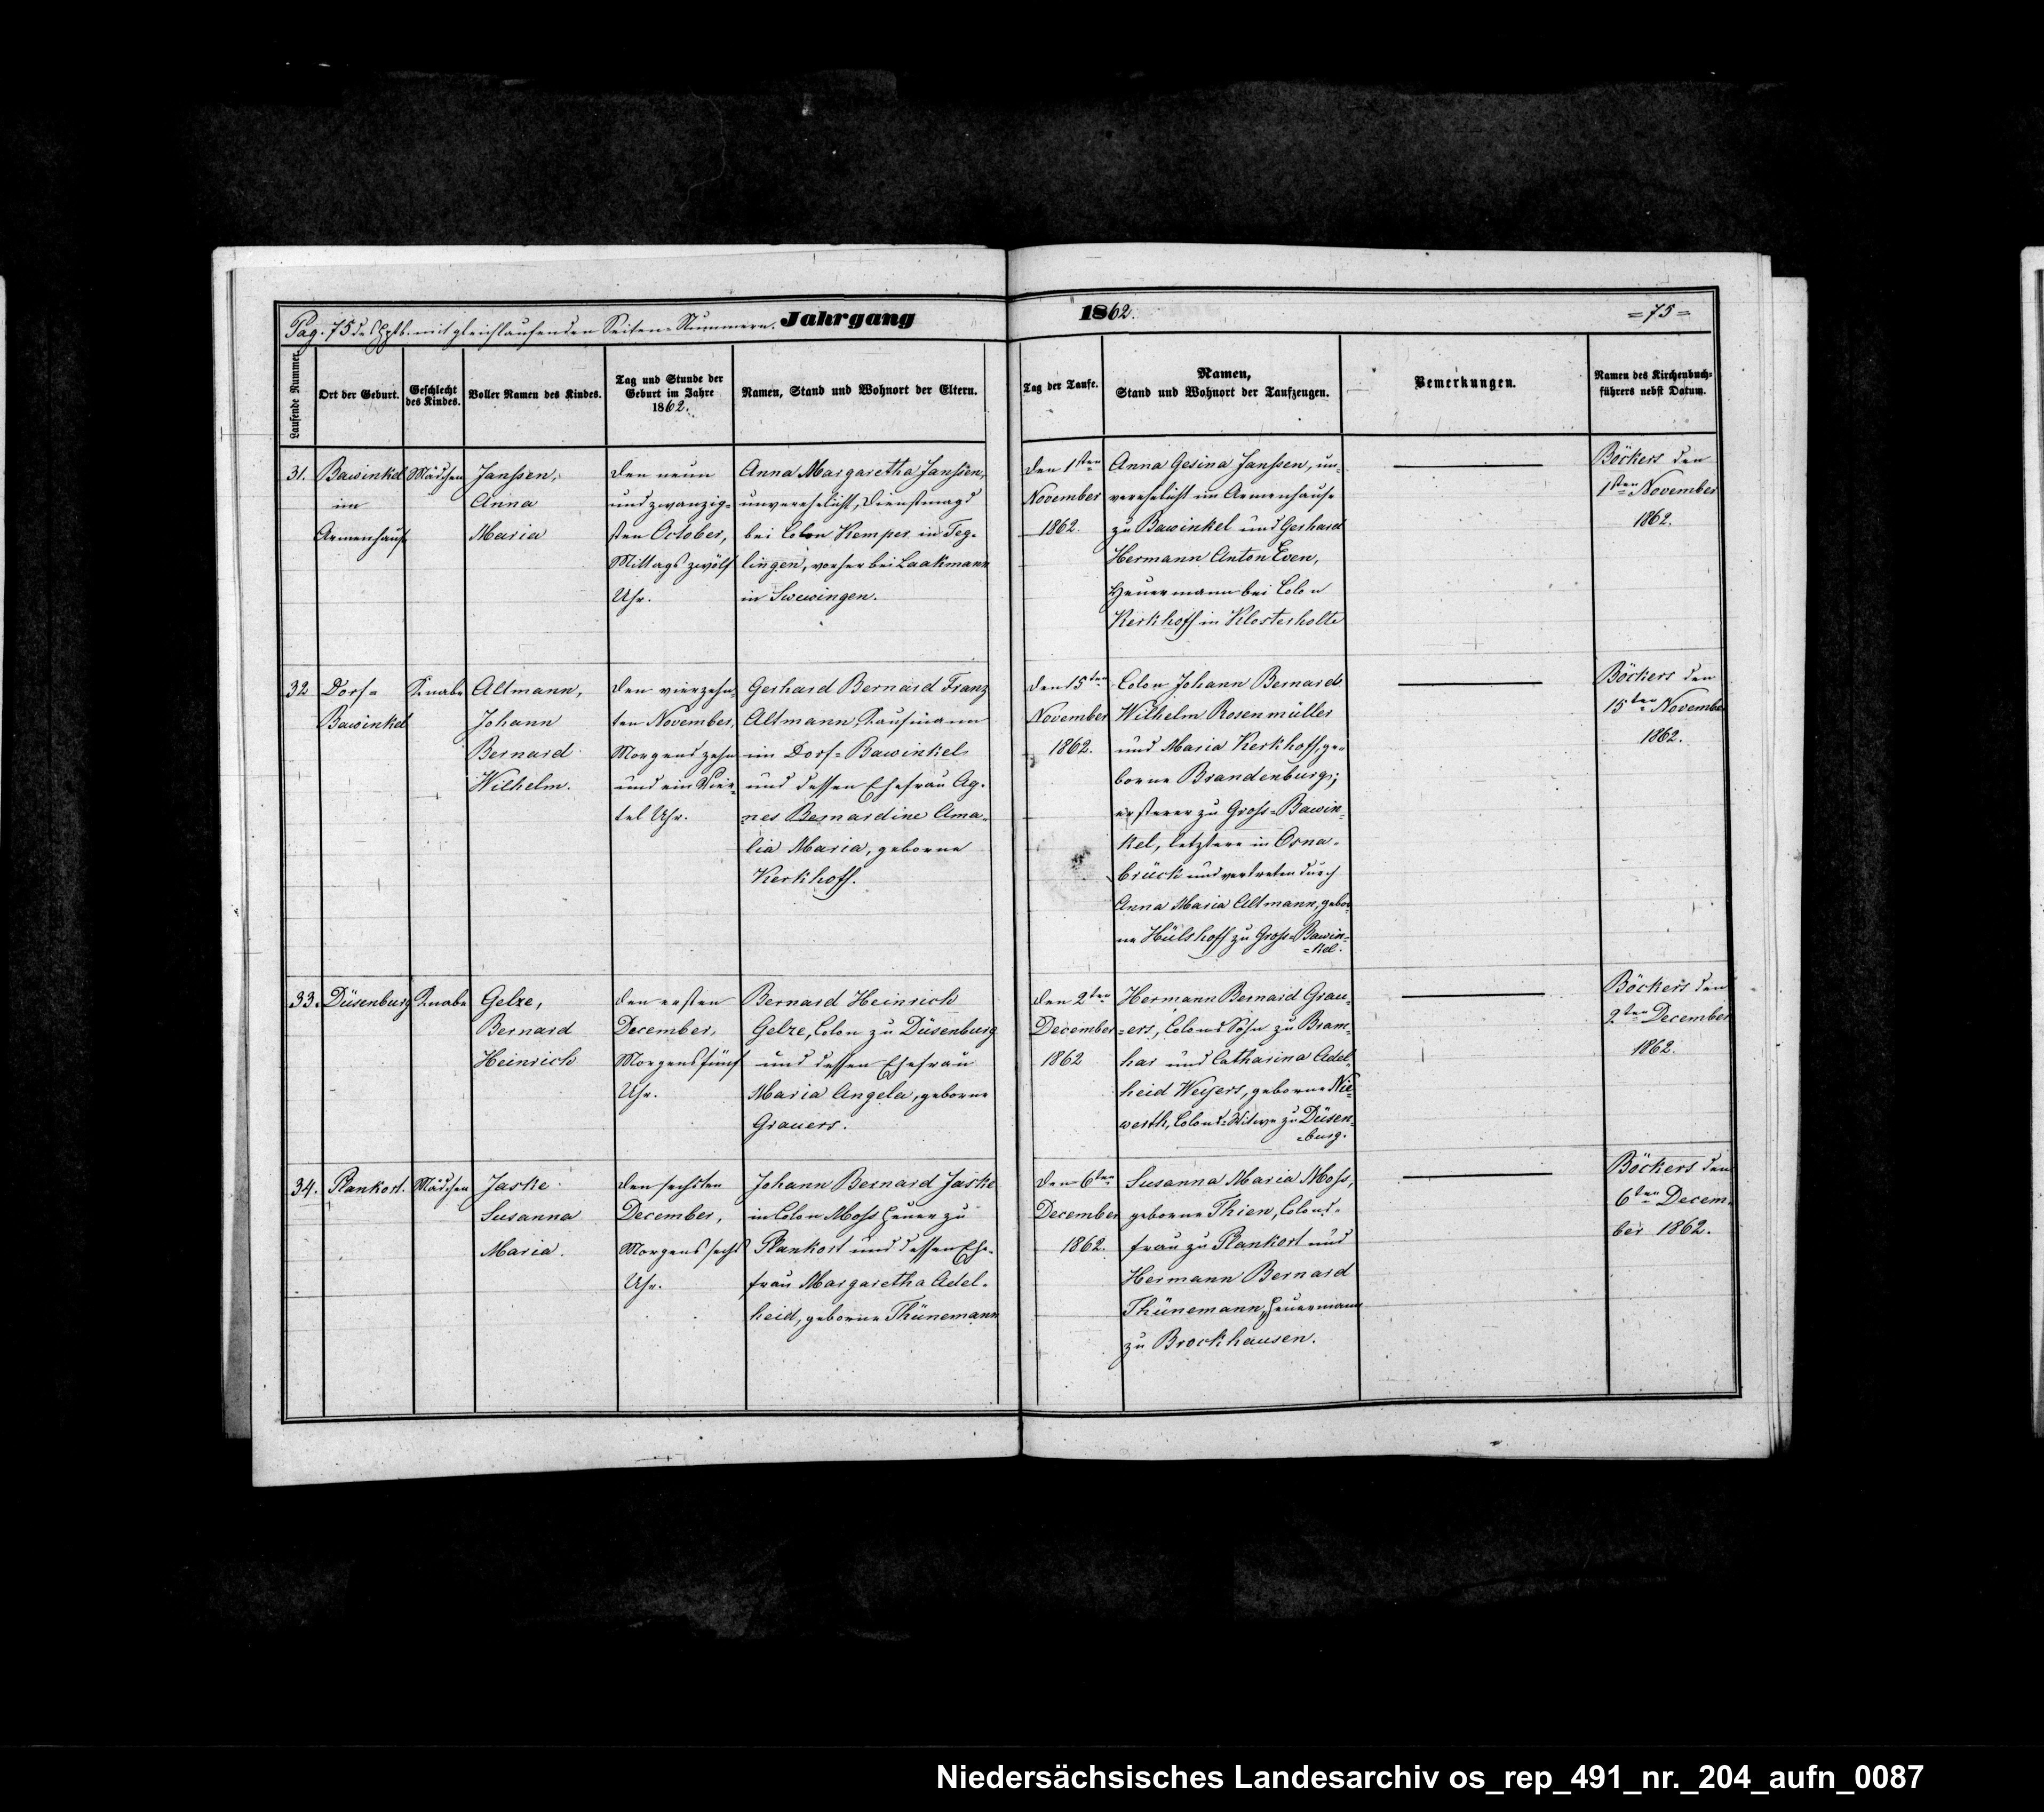 Pag. 75 des Hptb. mit gleichlaufenden Seiten-Nummern. Jahrgang 1862. =75=
Laufende Nummer.
Ort der Geburt.
Geschlecht
des Kindes.
Voller Namen des Kindes.
Tag und Stunde der
Geburt im Jahre
1862.
Namen, Stand und Wohnort der Eltern.
Tag der Taufe.
Namen,
Stand und Wohnort der Taufzeugen.
Bemerkungen.
Namen des Kirchenbuch-
führers nebst Datum.
31.
Bawinkel
im
Armenhause
Mädchen
Janssen,
Anna
Maria
Den neun
und zwanzig-
sten October,
Mittags zwölf
Uhr.
Anna Margaretha Janssen,
unverehelicht, Dienstmagd
bei Colon Kemper in Teg-
lingen, vorher bei Laakmann
in
den 1sten
November
1862.
Anna Gesina Janssen, un-
verehelicht im Armenhause
zu Bawinkel und Gerhard
Hermann Anton Even,
Heuermann bei Colon
Kerkhoff in Klosterholte
Böckers den
1sten November
1862.
32
Dorf=
Bawinkel
Knabe
Altmann,
Johann
Bernard
Wilhelm.
den vierzehn-
ten November,
Morgens zehn
und ein Vier-
tel Uhr.
Gerhard Bernard Franz
Altmann, Kaufmann
im Dorf=Bawinkel
und dessen Ehefrau Ag-
nes Bernardine Ama-
lia Maria, geborne
Kerkhoff.
den 15ten
November
1862.
Colon Johann Bernard
Wilhelm Rosenmüller
und Maria Kerkhoff, ge-
borne Brandenburg;
ersterer zu Gross=Bawin-
kel, letztere in Osna-
brück und vertreten durch
Anna Maria Altmann, gebor-
ne Hülshoff zu Gross=Bawin-
=kel.
Böckers den
15ten November
1862.
33.
Düsenburg
Knabe
Gelze,
Bernard
Heinrich
den ersten
December,
Morgens fünf
Uhr.
Bernard Heinrich
Gelze, Colon zu Düsenburg
und dessen Ehefrau
Maria Angela, geborne
Grauers.
den 2ten
December
1862
Hermann Bernard Grau-
=ers, Colons Sohn zu Bram-
har und Catharina Adel-
heid Weijers, geborne Nie-
werth, Colons=Witwe zu Düsen-
=burg.
Böckers den
2ten December
1862.
34.
Plankort.
Mädchen
Jaske
Susanna
Maria.
den sechsten
December,
Morgens sechs
Uhr.
Johann Bernard Jaske
in Colon Moss Heuer zu
Plankort und dessen Ehe-
frau Margaretha Adel-
heid, geborne Thünemann
den 6ten
December
1862.
Susanna Maria Moss,
geborne Thien, Colons-
frau zu Plankort und
Hermann Bernard
Thünemann, Heuermann
zu Brockhausen.
Böckers den
6ten Decem-
ber 1862.
Niedersächsisches Landesarchiv os_rep_491_nr._204_aufn_0087